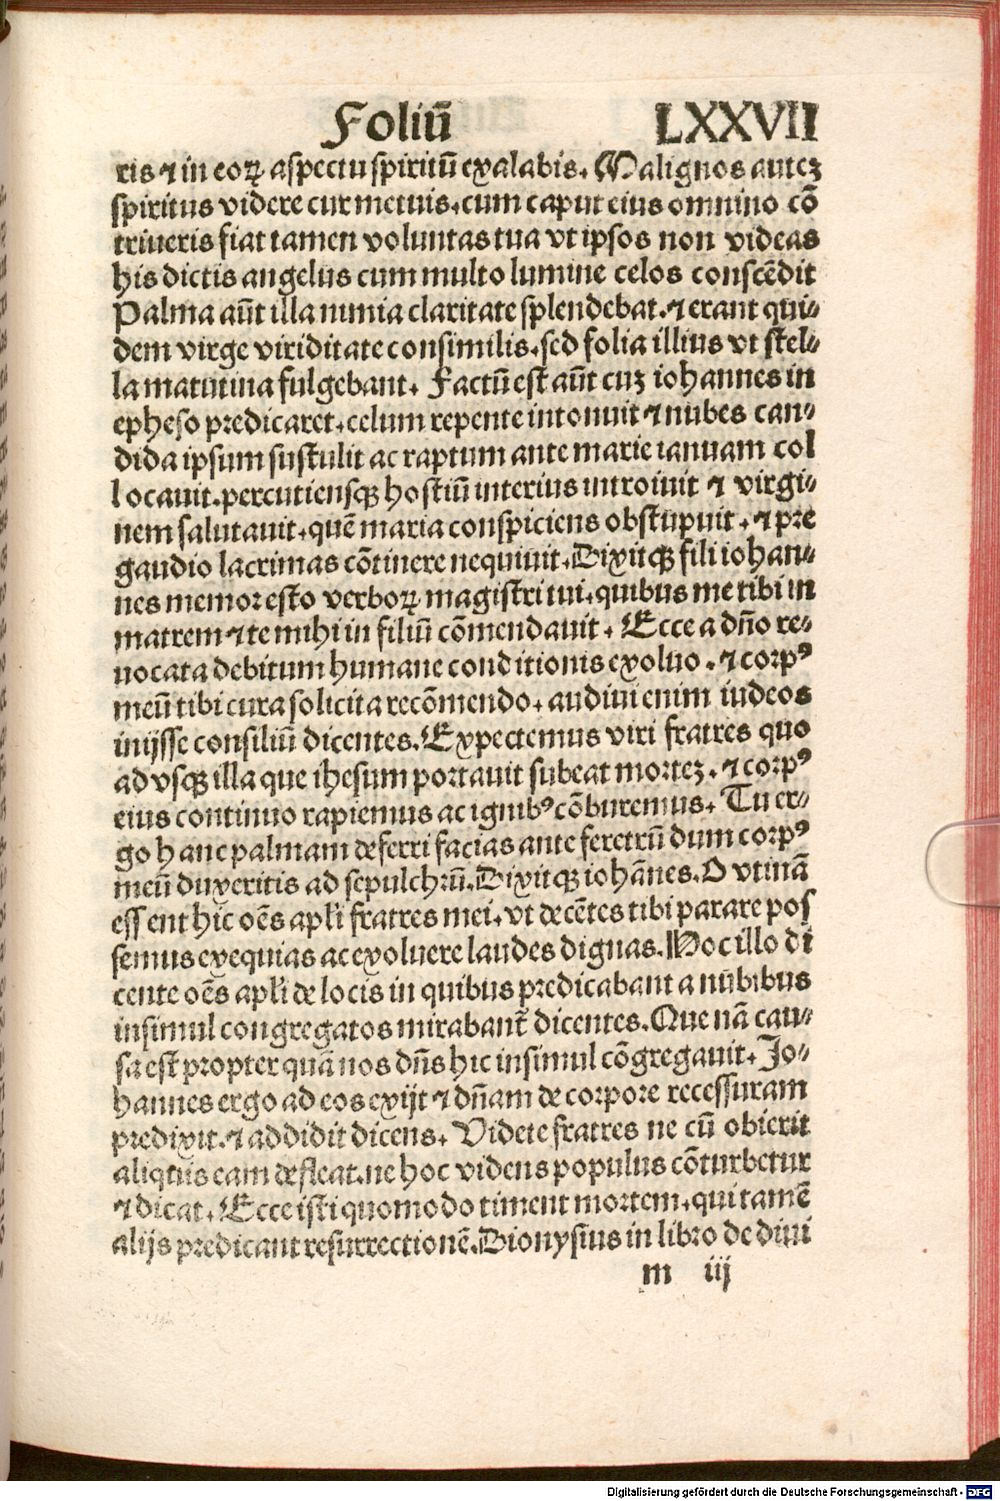 Foliū LXXVII
ris ⁊ in eoꝝ aspectu spiritū exalabis. Malignos autez
spiritus videre cur metuis. cum caput eius omnino cō
triueris fiat tamen voluntas tua vt ipsos non videas
his dictis angelus cum multo lumine celos conscēdit
Palma aūt illa nimia claritate splendebat. ⁊ erant qui⸗
dem virge viriditate consimilis. sed folia illius vt stel⸗
la matutina fulgebant. Factū est aūt cuz iohannes in
epheso predicaret. celum repente intonuit ⁊ nubes can⸗
dida ipsum sustulit ac raptum ante marie ianuam col
locauit. percutiensqꝫ hostiū interius introiuit ⁊ virgi⸗
nem salutauit. quē maria conspiciens obstupuit. ⁊ pre
gaudio lacrimas cōtinere nequiuit. Dixitqꝫ fili iohan⸗
nes memor esto verboꝝ magistri tui. quibus me tibi in
matrem ⁊ te mihi in filiū cōmendauit. Ecce a dño re⸗
uocata debitum humane conditionis exoluo. ⁊ corpꝰ
meū tibi cura solicita recōmendo. audiui enim iudeos
inijsse consiliū dicentes. Expectemus viri fratres quo
ad vsqꝫ illa que ihesum portauit subeat mortez. ⁊ corpꝰ
eius continuo rapiemus ac ignibꝰ cōburemus. Tu er⸗
go hanc palmam deferri facias ante feretrū dum corpꝰ
meū duxeritis ad sepulchrū. Dixitqꝫ iohānes. O vtinā
essent hic oēs apli fratres mei. vt decētes tibi parare pos
semus exequias ac exoluere laudes dignas. Hoc illo di
cente oēs apli de locis in quibus predicabant a nūbibus
insimul congregatos mirabant̄ dicentes. Que nā cau⸗
sa est propter quā nos dñs hic insimul cōgregauit. Jo⸗
hannes ergo ad eos exijt ⁊ dñam de corpore recessuram
predixit. ⁊ addidit dicens. Videte fratres ne cū obierit
aliqtiis eam defleat. ne hoc videns populus cōturbetur
⁊ dicat. Ecce isti quomodo timent mortem. qui tamē
alijs predicant resurrectionē. Dionysius in libro de diui
m iij
Digitalisierung gefördert durch die Deutsche Forschungsgemeinschaft - DFG